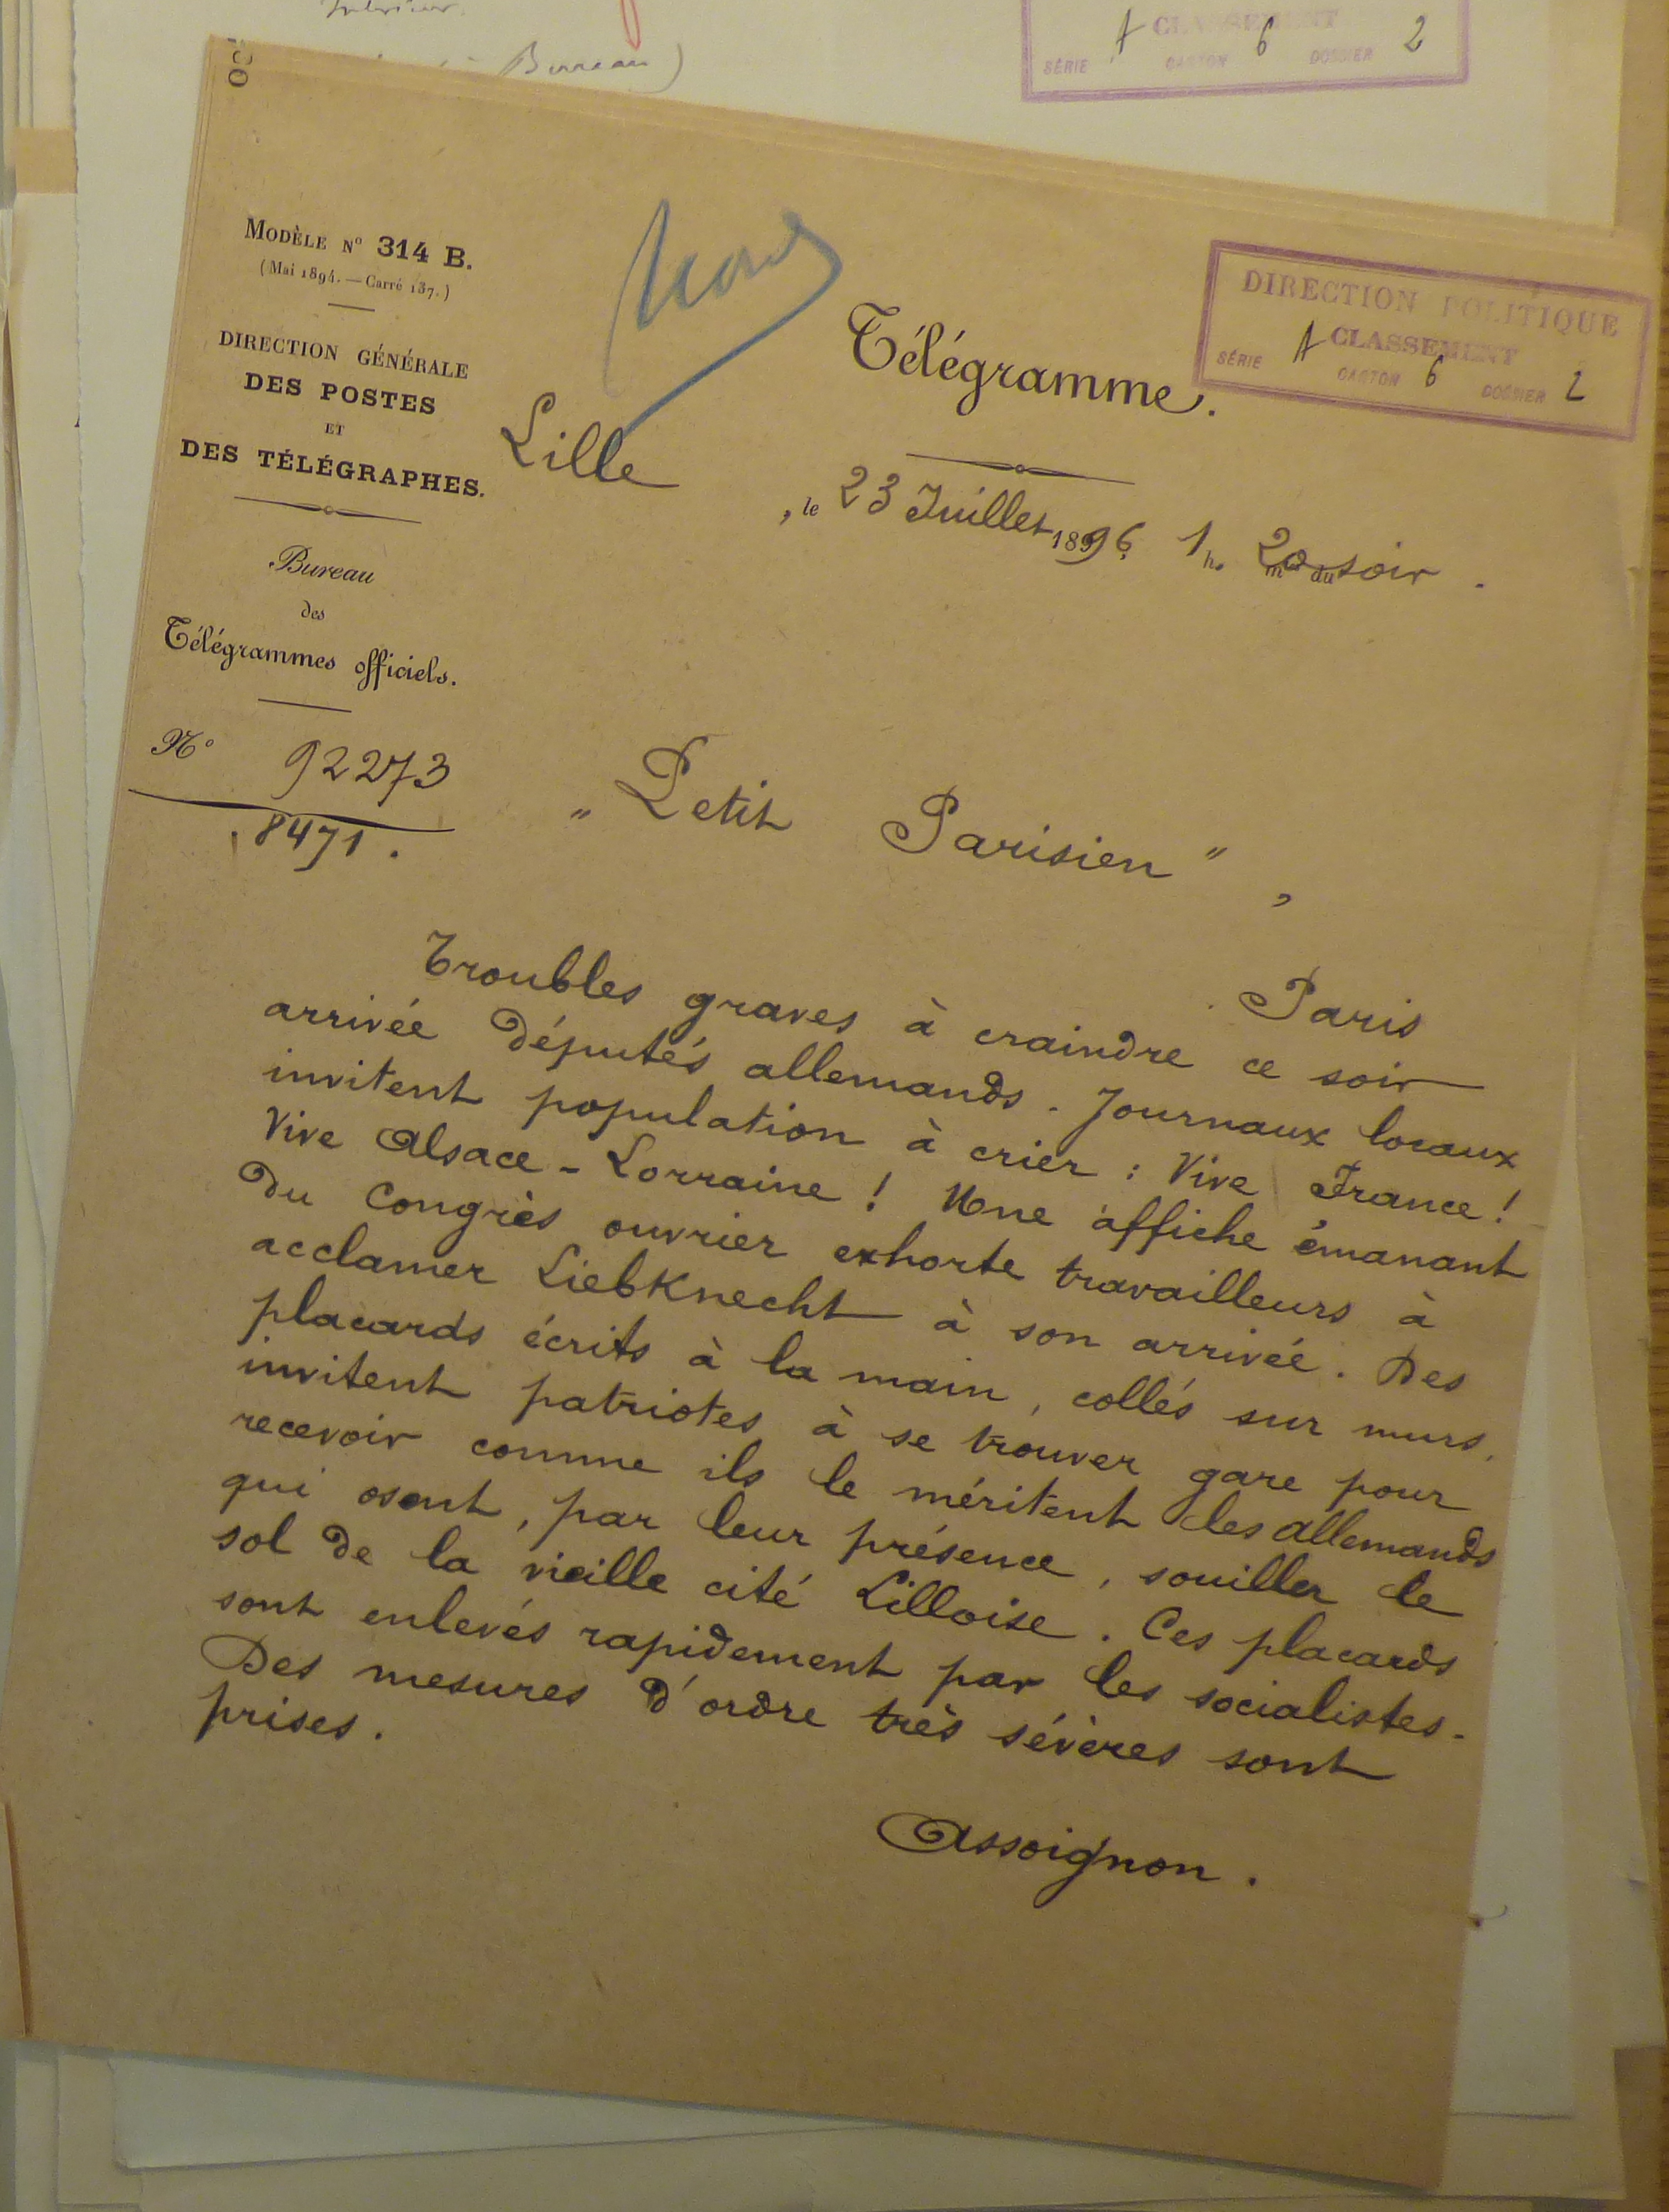 Bureau)
CLASSEMENT
SÉRIE A CARTON 6 DOSSIER 2
MODÈLE N° 314 B.
(Mai 1894. — Carré 137.)
DIRECTION GÉNÉRALE
DES POSTES
ET
DES TÉLÉGRAPHES.
Bureau
des
Télégrammes officiels.
N° 92273
8471.
DIRECTION POLITIQUE
CLASSEMENT
SÉRIE A CARTON 6 DOSSIER 2
Télégramme.
Lille, le 23 Juillet 1896 1 h. 20 m du soir.
"Petit Parisien",
Paris
Troubles graves à craindre ce soir
arrivée députés allemands. Journaux locaux
invitent population à crier : Vive France !
Vive Alsace-Lorraine ! Une affiche émanant
du Congrès ouvrier exhorte travailleurs à
acclamer Liebknecht à son arrivée. Des
placards écrits à la main, collés sur murs,
invitent patriotes à se trouver gare pour
recevoir comme ils le méritent les allemands
qui osent, par leur présence, souiller le
sol de la vieille cité Lilloise. Ces placards
sont enlevés rapidement par les socialistes.
Des mesures d'ordre très sévères sont
prises.
Assoignon.